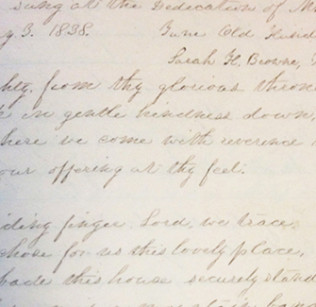 Sung at the Dedication of M
y 3. 1838. Tune Old Hund
Sarah H. Browne,
hty, from thy glorious thron
in gentle kindness down,
here we come with reverence
our offering at thy feet.
iding finger, Lord, we trace,
chose for us this lovely place,
bade this house securely stand